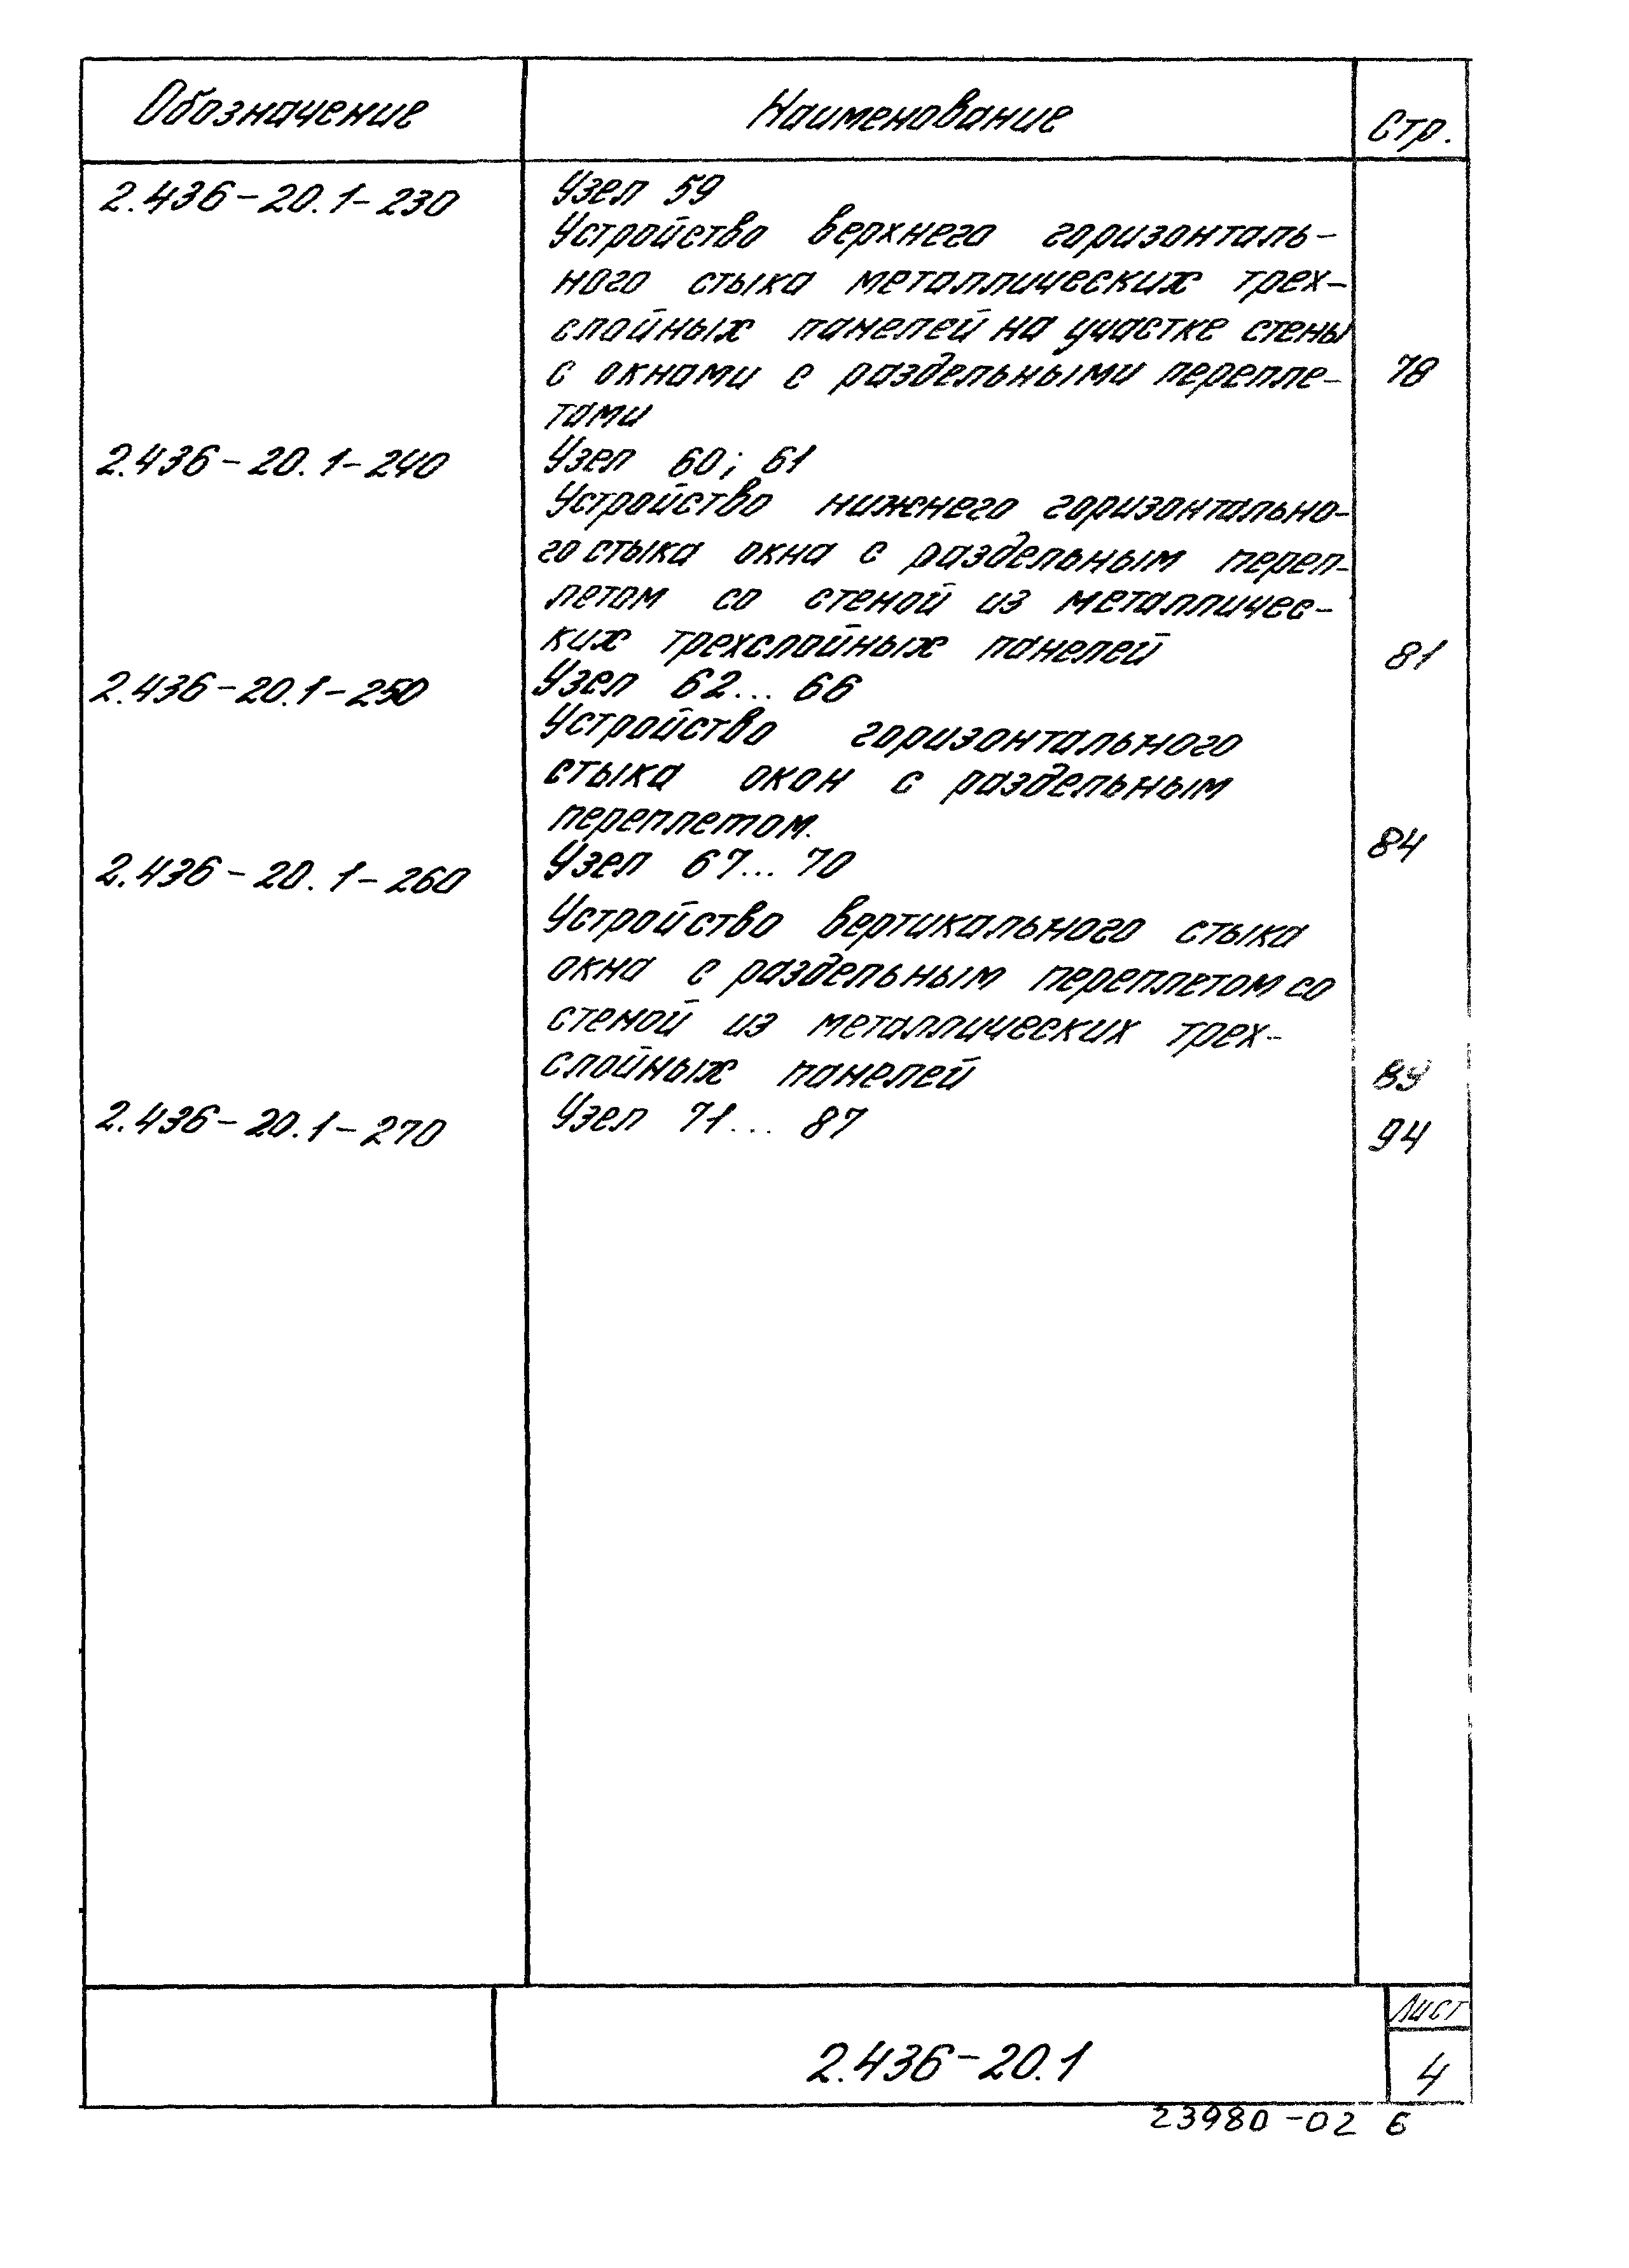 Обозначение Наименование Стр.
2.436-20.1-230 Узел 59
Устройство верхнего горизонталь-
ного стыка металлических трех-
слойных панелей на участке стены
с окнами с раздельными перепле- 78
тами
2.436-20.1-240 Узел 60; 61
Устройство нижнего горизонтально-
го стыка окна с раздельным переп-
летом со стеной из металличес-
ких трехслойных панелей 81
2.436-20.1-250 Узел 62... 66
Устройство горизонтального
стыка окон с раздельным
переплетом. 84
2.436-20.1-260 Узел 67... 70
Устройство вертикального стыка
окна с раздельным переплетом со
стеной из металлических трех-
слойных панелей 89
2.436-20.1-270 Узел 71... 87 94
Лист
2.436-20.1 4
23980-02 6